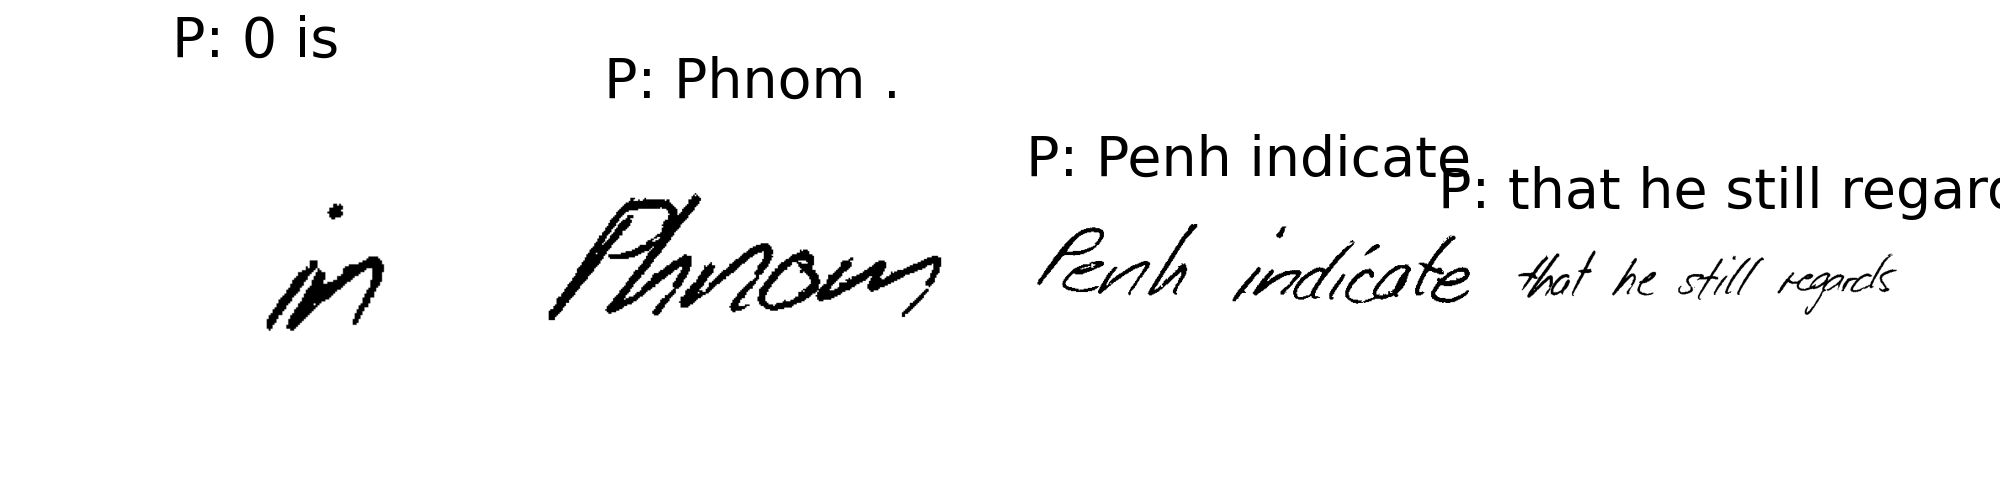 P: 0 is
P: Phnom .
P: Penh indicate
P: that he still regard
in Phnom Penh indicate that he still regards